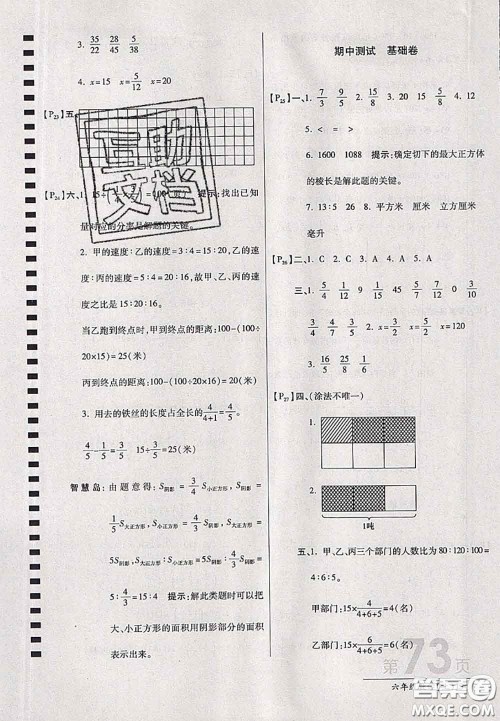 3. 35/22 28/45 5/58
4. x=15 x=20 x=5/4
【P23】五、
互助文档
【P24】六、1. 15÷
提示:找出已知
量对应的分率是解题的关键。
2. 甲的速度:乙的速度=3:4=15:20,乙的速
度:丙的速度=5:4=20:16,故甲、乙、丙的速
度之比是15:20:16。
当乙跑到终点时,甲与终点的距离:100-(100÷
20×15)=25(米)
丙到终点的距离:100-(100÷20×16)=20(米)
3. 用去的铁丝的长度占全长的4/(4+1)=4/5。
4/5-1/5=3/5 15÷3/5=25(米)
智慧岛:由题意得:S阴影=3/4S小正方形,S阴影=
1/5S大正方形,S小正方形=4/3S阴影,S大正方形=
5S阴影,S大正方形:S小正方形=5S阴影:4/3S阴影=
5:4/3=15:4 提示:解此类题时可以把
大、小正方形的面积用阴影部分的面积
表示出来。
期中测试 基础卷
【P25】一、1. 7/3 9/5 2. 15/8 3. 20 15 4. 12
5. < = >
6. 1600 1088 提示:确定切下的最大正方体
的棱长是解此题的关键。
7. 13:5 26 8. 平方米 厘米 立方厘米
毫升
【P26】二、1. C 2. C 3. C 4. A 5. A
三、1. 5/4 5/12 9 45/7 12 0 3/10
1/3 4/7 2. x=4/5 x=5/2 x=120
3. 16/5 25/8 1/6
【P27】四、(涂法不唯一)
1.
2.
1吨
五、1. 甲、乙、丙三个部门的人数比为80:120:100=
4:6:5。
甲部门:15×4/(4+6+5)=4(名)
乙部门:15×6/(4+6+5)=6(名)
第73页
六年级
答案圈
MXQE.COM